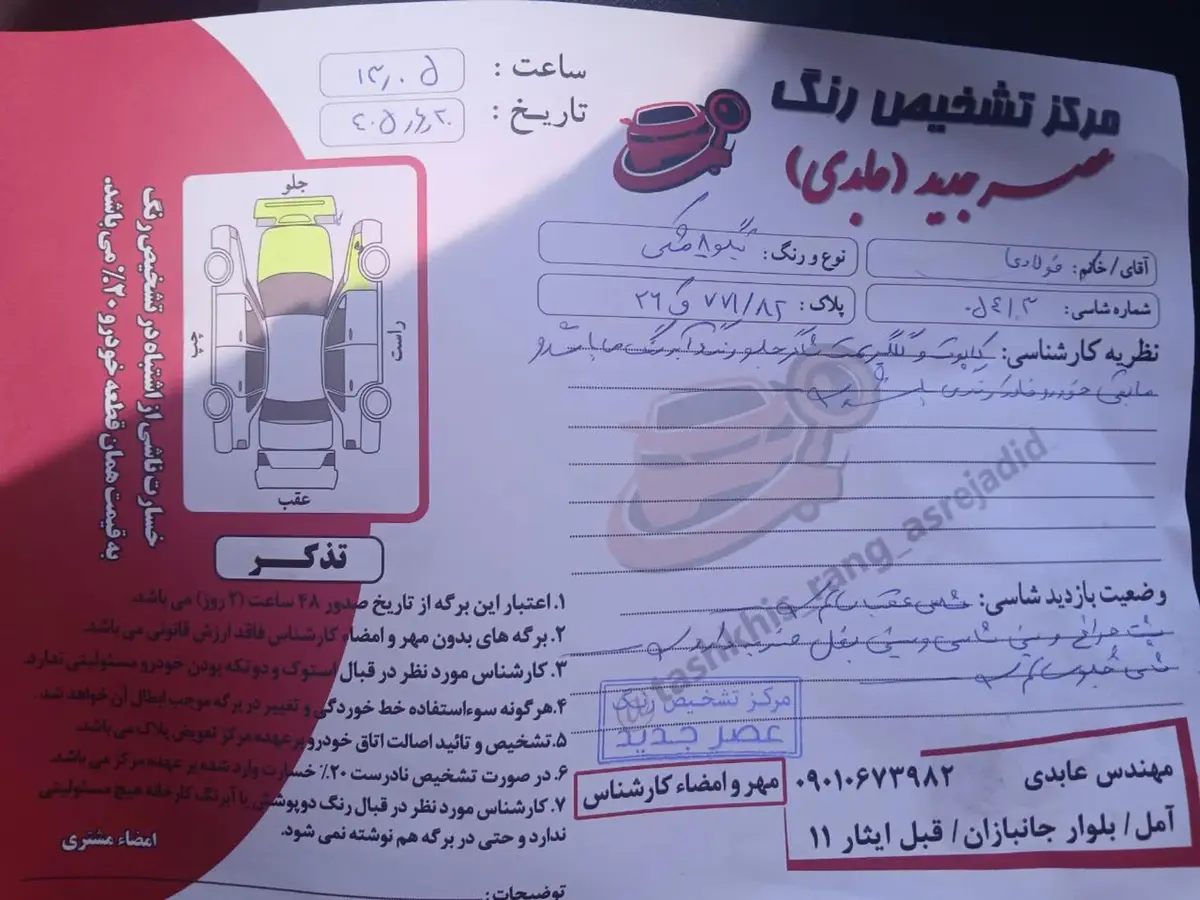 مرکز تشخیص رنگ
عصر جدید (عابدی)
ساعت : ۱۳,۰۵
تاریخ :
آقای/خانم: فولادی
نوع و رنگ: تیگو ۸ مشکی
شماره شاسی: ۰۵۴۱۰۳
پلاک: ۸۲/ ۷۷۱ و ۲۶
نظریه کارشناسی: کاپوت و گلگیر راست جلو رنگ
مابقی خودرو فاقد رنگ می باشد
وضعیت بازدید شاسی: شاسی عقب سالم
پشت چراغ و سینی شاسی و سینی بغل ضربه دارد
شاسی جلو سالم
مرکز تشخیص رنگ
عصر جدید
مهر و امضاء کارشناس
مهندس عابدی ۰۹۰۱۰۶۷۳۹۸۲
آمل/ بلوار جانبازان/ قبل ایثار ۱۱
@tashkhis_rang_asrejadid
جلو
راست
چپ
عقب
خسارت ناشی از اشتباه در تشخیص رنگ
به قیمت همان قطعه خودرو ۲۰٪ می باشد.
تذکر
۱. اعتبار این برگه از تاریخ صدور ۴۸ ساعت (۲ روز) می باشد.
۲. برگه های بدون مهر و امضاء کارشناس فاقد ارزش قانونی می باشد.
۳. کارشناس مورد نظر در قبال استوک و دو تکه بودن خودرو مسئولیتی ندارد.
۴. هرگونه سوء استفاده خط خوردگی و تغییر در برگه موجب ابطال آن خواهد شد.
۵. تشخیص و تائید اصالت اتاق خودرو بر عهده مرکز تعویض پلاک می باشد.
۶. در صورت تشخیص نادرست ۲۰٪ خسارت وارد شده بر عهده مرکز می باشد.
۷. کارشناس مورد نظر در قبال رنگ دوپوشش یا آبرنگ کارخانه هیچ مسئولیتی
ندارد و حتی در برگه هم نوشته نمی شود.
امضاء مشتری
توضیحات: